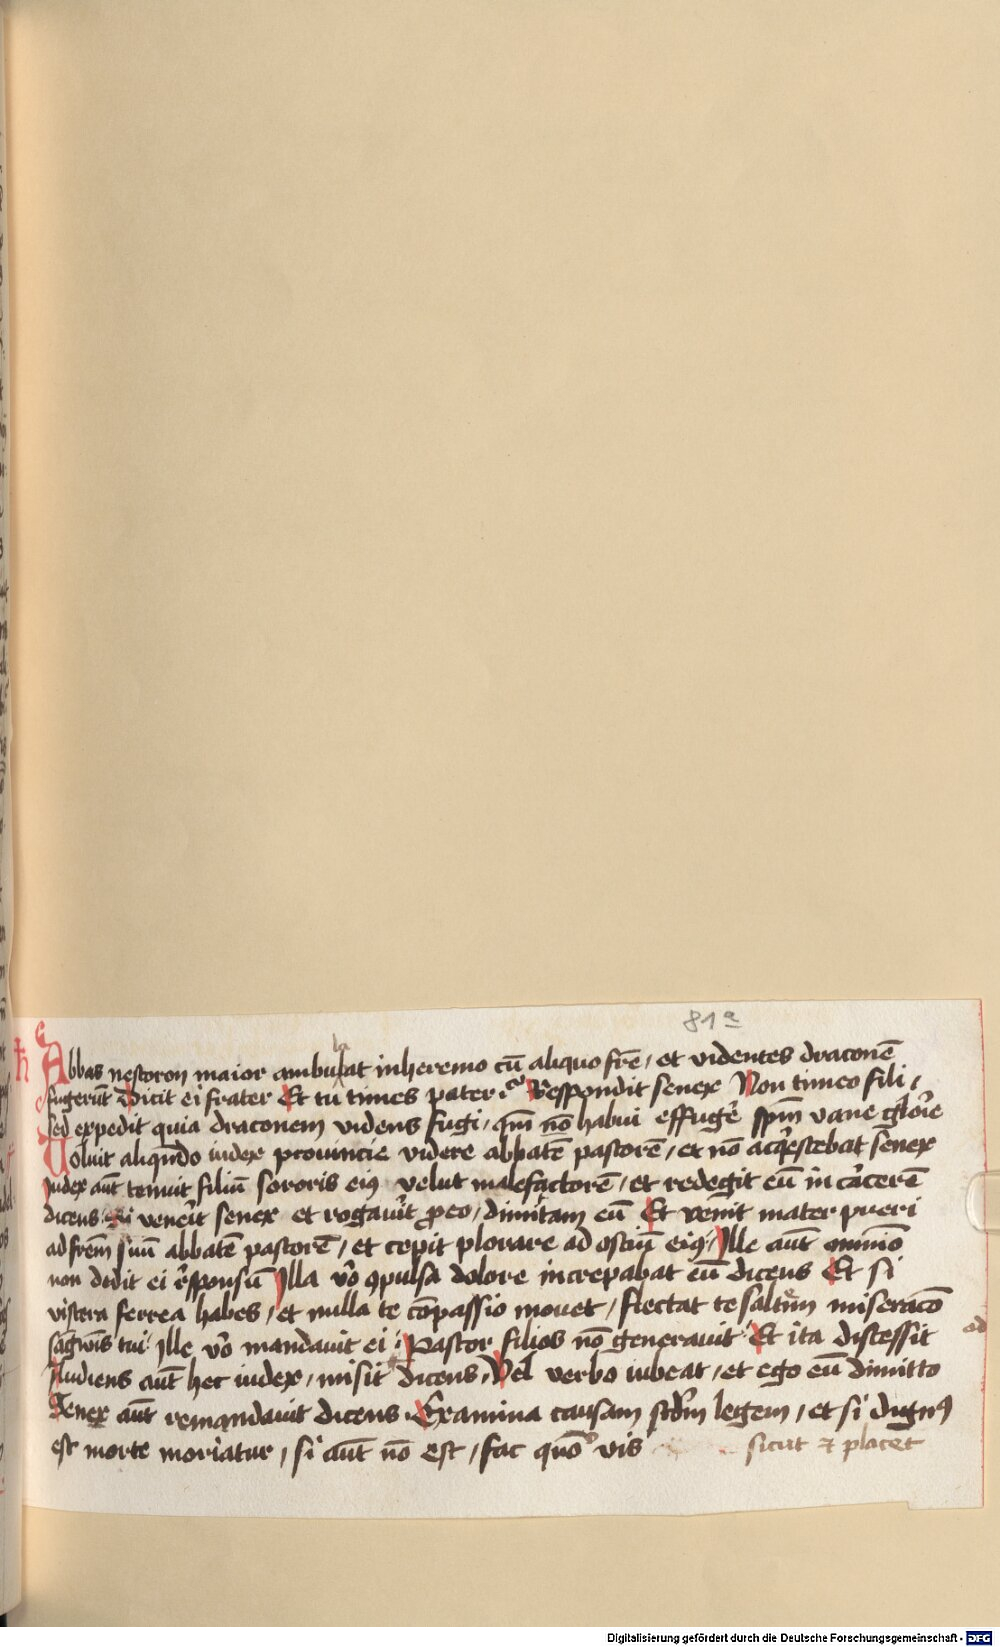 81a
Abbas nestoron maior ambulat inheremo cū aliquo frē / et videntes draconē
fugerūt Dicit ei frater Et tu times pater Respondit senex Non timeo fili /
sed expedit quia draconem videns fugi / qm̄ nō habui effugere spm̄ vane glorie
Uoluit aliqn̄do iudex prouincie videre abbatē pastorē / et nō acqͥescebat senex
Iudex aūt tenuit filiū sororis eiꝰ velut malefactorē / et redegit eū in carcerē
dicens Si venerit senex et rogaūit ꝓ eo / dimittam eū Et venit mater pueri
ad frēm suū abbatē pastorē / et cepit plorare ad ostiū eiꝰ Ille aūt omnīo
non dedit ei rn̄sponsū Illa vo ꝯpulsa dolore increpabat eū dicens Et si
viscera ferrea habes / et nulla te cōpassio mouet / flectat te saltem miseracō
sāgwis tui Ille vo mandauit ei Pastor filios nō generauit Et ita discessit
Audiens aūt hec iudex / misit dicens Vel verbo iubeat / et ego eū dimitto
Senex aūt remandauit dicens Examina causam scdm̄ legem / et si dignꝰ
est morte moriatur / si aūt nō est / fac quō vis sicut t placet
Digitalisierung gefördert durch die Deutsche Forschungsgemeinschaft - DFG